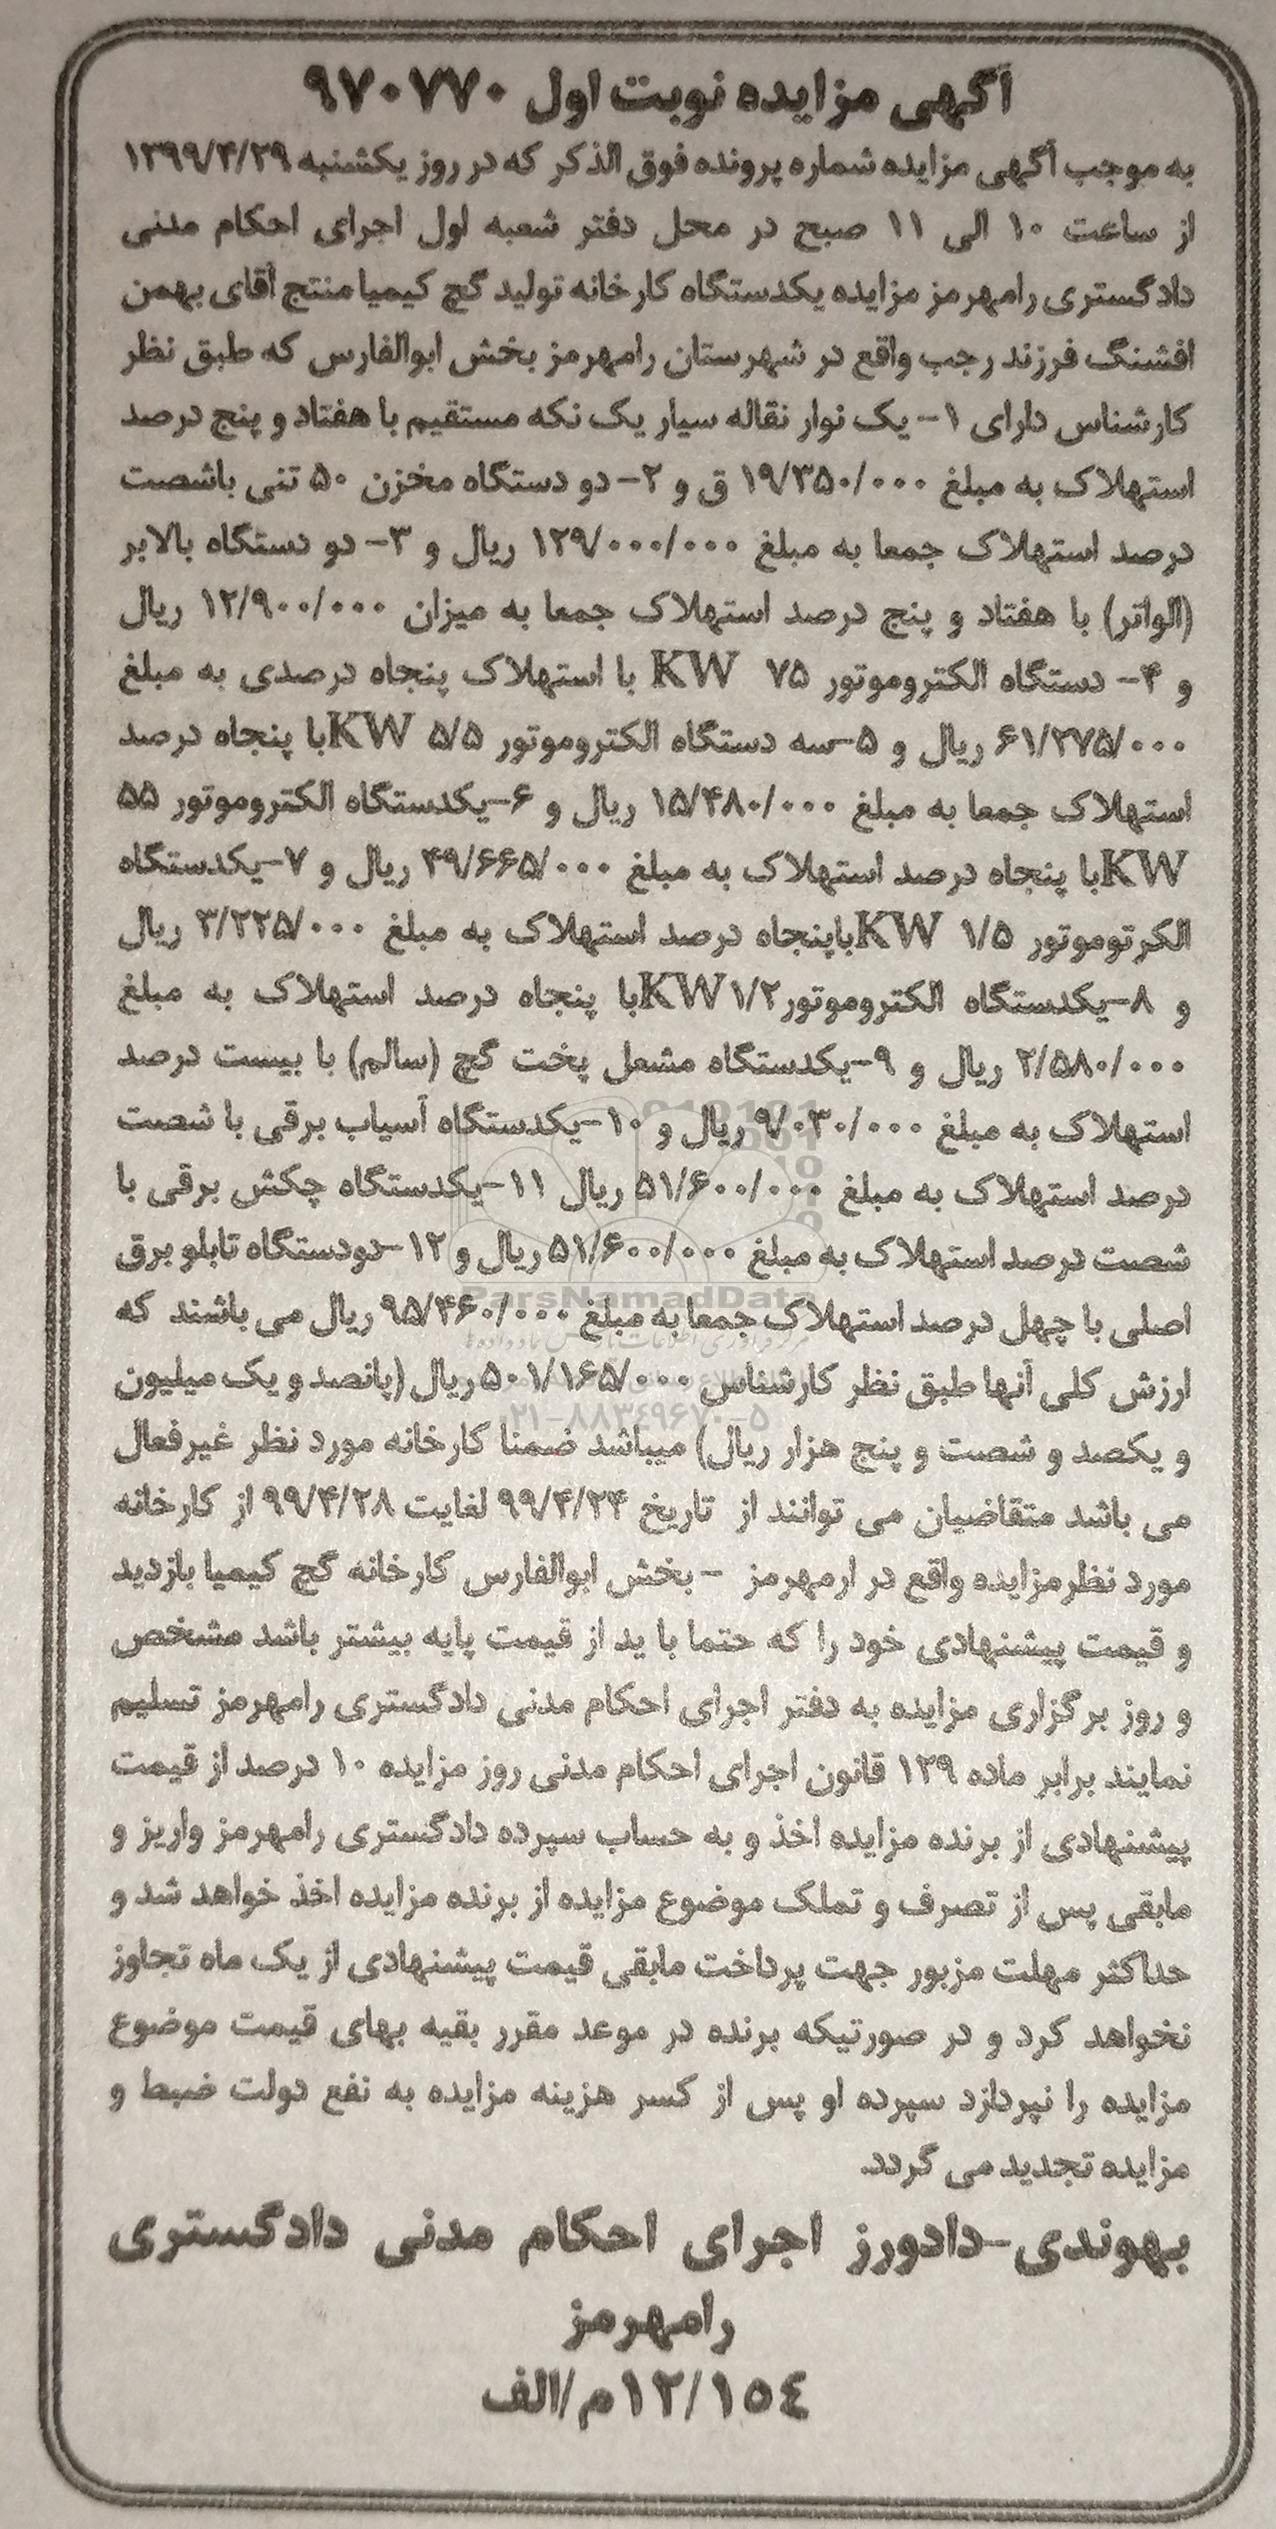 آگهی مزایده نوبت اول ۹۷۰۷۷۰
به موجب آگهی مزایده شماره پرونده فوق الذکر که در روز یکشنبه ۱۳۹۹/۴/۲۹
از ساعت ۱۰ الی ۱۱ صبح در محل دفتر شعبه اول اجرای احکام مدنی
دادگستری رامهرمز مزایده یکدستگاه کارخانه تولید گچ کیمیا منتج آقای بهمن
افشنگ فرزند رجب واقع در شهرستان رامهرمز بخش ابوالفارس که طبق نظر
کارشناس دارای ۱- یک نوار نقاله سیار یک تکه مستقیم با هفتاد و پنج درصد
استهلاک به مبلغ ۱۹/۳۵۰/۰۰۰ ق و ۲- دو دستگاه مخزن ۵۰ تنی باشصت
درصد استهلاک جمعا به مبلغ ۱۲۹/۰۰۰/۰۰۰ ریال و ۳- دو دستگاه بالابر
(الواتر) با هفتاد و پنج درصد استهلاک جمعا به میزان ۱۲/۹۰۰/۰۰۰ ریال
و ۴- دستگاه الکتروموتور ۷۵ KW با استهلاک پنجاه درصدی به مبلغ
۶۱/۲۷۵/۰۰۰ ریال و ۵-سه دستگاه الکتروموتور ۵/۵ KWبا پنجاه درصد
استهلاک جمعا به مبلغ ۱۵/۴۸۰/۰۰۰ ریال و ۶-یکدستگاه الکتروموتور ۵۵
KWبا پنجاه درصد استهلاک به مبلغ ۴۹/۶۶۵/۰۰۰ ریال و ۷-یکدستگاه
الکرتوموتور ۱/۵ KWباپنجاه درصد استهلاک به مبلغ ۳/۲۲۵/۰۰۰ ریال
و ۸-یکدستگاه الکتروموتور۱/۲KWبا پنجاه درصد استهلاک به مبلغ
۲/۵۸۰/۰۰۰ ریال و ۹-یکدستگاه مشعل پخت گچ (سالم) با بیست درصد
استهلاک به مبلغ ۹/۰۳۰/۰۰۰ ریال و ۱۰-یکدستگاه آسیاب برقی با شصت
درصد استهلاک به مبلغ ۵۱/۶۰۰/۰۰۰ ریال ۱۱-یکدستگاه چکش برقی با
شصت درصد استهلاک به مبلغ ۵۱/۶۰۰/۰۰۰ ریال و ۱۲-دودستگاه تابلو برق
اصلی با چهل درصد استهلاک جمعا به مبلغ ۹۵/۴۶۰/۰۰۰ ریال می باشند که
ارزش کلی آنها طبق نظر کارشناس ۵۰۱/۱۶۵/۰۰۰ ریال (پانصد و یک میلیون
و یکصد و شصت و پنج هزار ریال) میباشد ضمنا کارخانه مورد نظر غیرفعال
می باشد متقاضیان می توانند از تاریخ ۹۹/۴/۲۴ لغایت ۹۹/۴/۲۸ از کارخانه
مورد نظرمزایده واقع در ارمهرمز - بخش ابوالفارس کارخانه گچ کیمیا بازدید
و قیمت پیشنهادی خود را که حتما با ید از قیمت پایه بیشتر باشد مشخص
و روز برگزاری مزایده به دفتر اجرای احکام مدنی دادگستری رامهرمز تسلیم
نمایند برابر ماده ۱۲۹ قانون اجرای احکام مدنی روز مزایده ۱۰ درصد از قیمت
پیشنهادی از برنده مزایده اخذ و به حساب سپرده دادگستری رامهرمز واریز و
مابقی پس از تصرف و تملک موضوع مزایده از برنده مزایده اخذ خواهد شد و
حداکثر مهلت مزبور جهت پرداخت مابقی قیمت پیشنهادی از یک ماه تجاوز
نخواهد کرد و در صورتیکه برنده در موعد مقرر بقیه بهای قیمت موضوع
مزایده را نپردازد سپرده او پس از کسر هزینه مزایده به نفع دولت ضبط و
مزایده تجدید می گردد.
بهوندی-دادورز اجرای احکام مدنی دادگستری
رامهرمز
۱۲/۱۵٤م/الف
ParsNamadData
۰۲۱-۸۸۳۴۹۶۷۰-۵